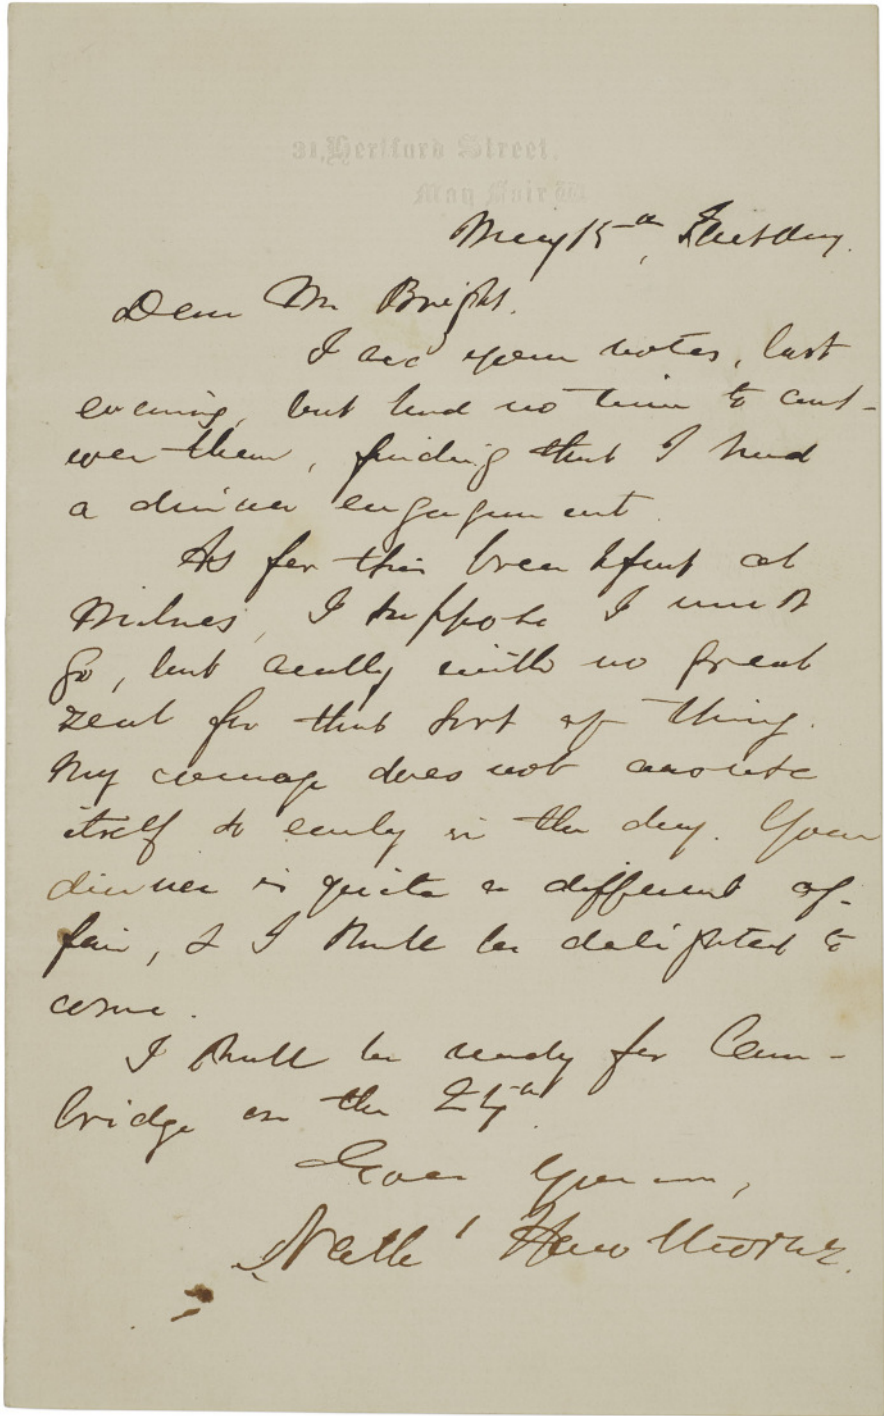 31, Hertford Street,
May Fair W.
May 15th, Tuesday.
Dear Mr Bright.
I recd your notes, last
evening, but had no time to ans-
wer them, finding that I had
a dinner engagement.
As for this breakfast at
Milnes, I suppose I must
go, but really with no great
zeal for that sort of thing.
My courage does not arouse
itself so early in the day. Your
dinner is quite a different af-
fair, & I shall be delighted to
come.
I shall be ready for Cam-
bridge on the
Ever Yours,
Nathl Hawthorne.